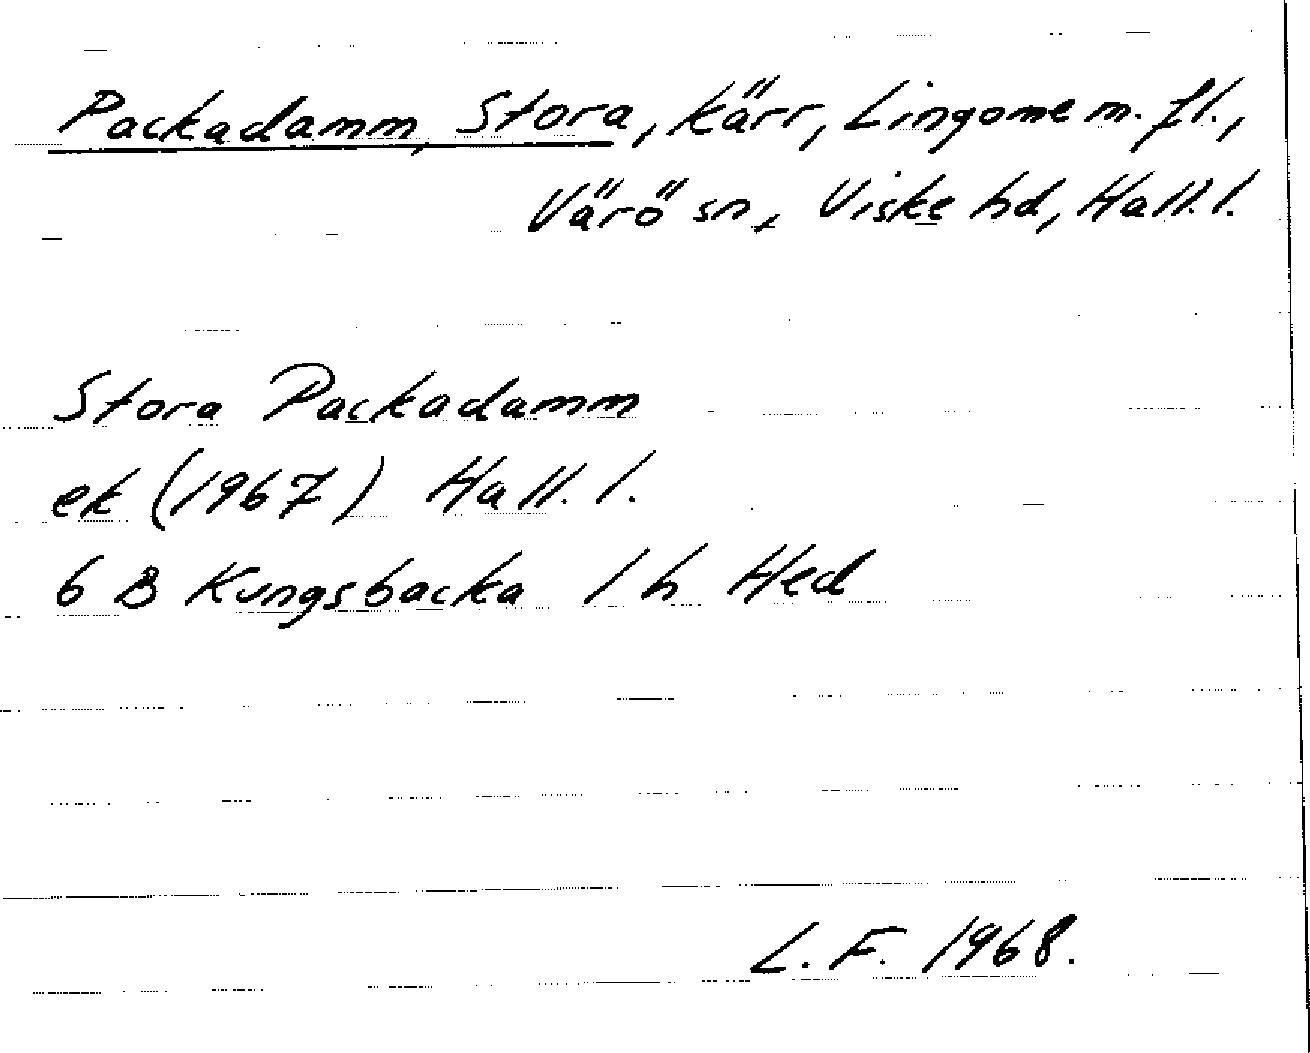 Packadamm, Stora, kärr, Lingome m. fl.,
Värö sn, Viske hd, Hall. l.
Stora Packadamm
ek (1967) Hall. l.
6 B Kungsbacka 1 h Hed
L. F. 1968.